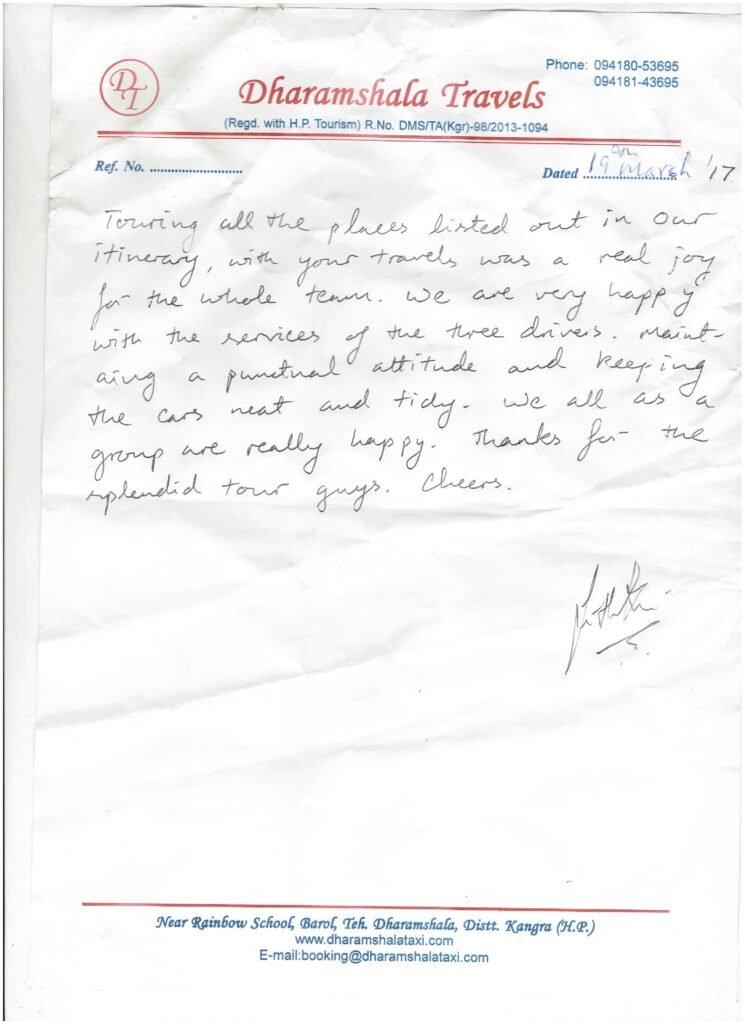 DT
Phone: 094180-53695
094181-43695
Dharamshala Travels
(Regd. with H.P. Tourism) R.No. DMS/TA(Kgr)-98/2013-1094
Ref. No. ............................
Dated 19 March '17
Touring all the places listed out in our
itinerary, with your travels was a real joy
for the whole team. We are very happy
with the services of the three drivers. Maint-
aing a punctual attitude and keeping
the cars neat and tidy. We all as a
group are really happy. Thanks for the
splendid tour guys. Cheers.
Near Rainbow School, Barol, Teh. Dharamshala, Distt. Kangra (H.P.)
www.dharamshalataxi.com
E-mail:booking@dharamshalataxi.com